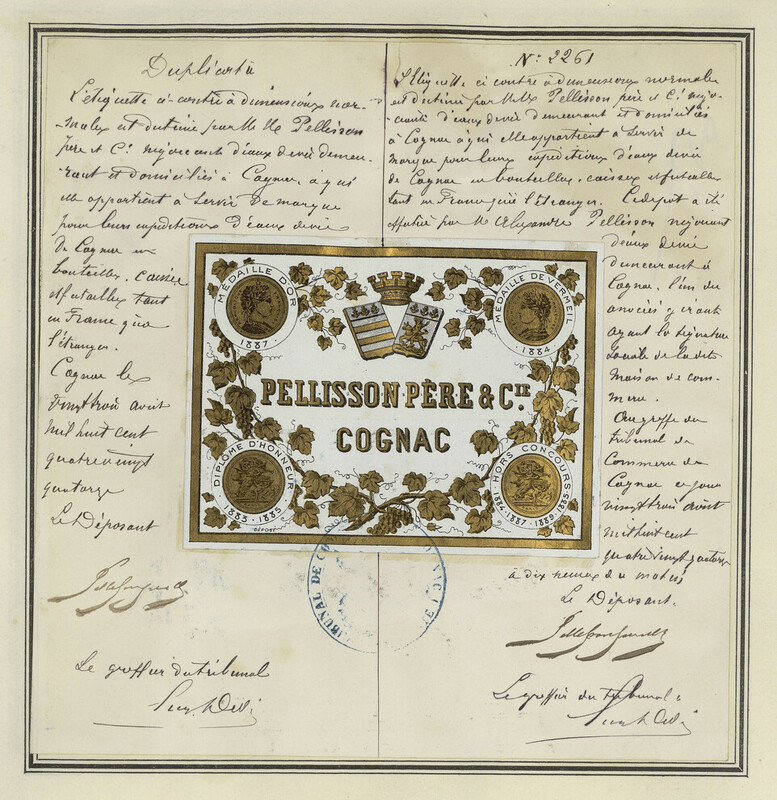 Duplicata
L'étiquette ci-contre à dimensions nor-
males est destinée par MM. Pellisson
père et Cie négociants d'eaux de vie demeu-
rant et domiciliés à Cognac, à qui
elle appartient à servir de marque
pour leurs expéditions d'eaux de vie
de Cognac en
bouteilles, caisses
et futailles tant
en France qu'à
l'étranger.
Cognac le
vingt trois août
mil huit cent
quatre vingt
quatorze
Le Déposant
Le greffier du tribunal
N° 2261
L'Etiquette ci contre à dimensions normales
est destinée par MM. Pellisson père et Cie négo-
ciants d'eaux de vie demeurant et domiciliés
à Cognac à qui elle appartient à servir de
marque pour leurs expéditions d'eaux de vie
de Cognac en bouteilles, caisses et futailles
tant en France qu'à l'Etranger. Ce dépôt a été
effectué par M. Alexandre Pellisson négociant
d'eaux de vie
demeurant à
Cognac, l'un des
associés gérants
ayant la signature
sociale de la dite
maison de com-
merce.
Au greffe du
tribunal de
Commerce de
Cognac ce jour
vingt trois août
mil huit cent
quatre vingt quatorze
à dix heures du matin
Le Déposant.
Le greffier du tribunal
MÉDAILLE D'OR
1887
MÉDAILLE DE VERMEIL
1884
PELLISSON PÈRE & CIE
COGNAC
DIPLÔME D'HONNEUR
1883-1885
HORS CONCOURS
DÉPOSÉ